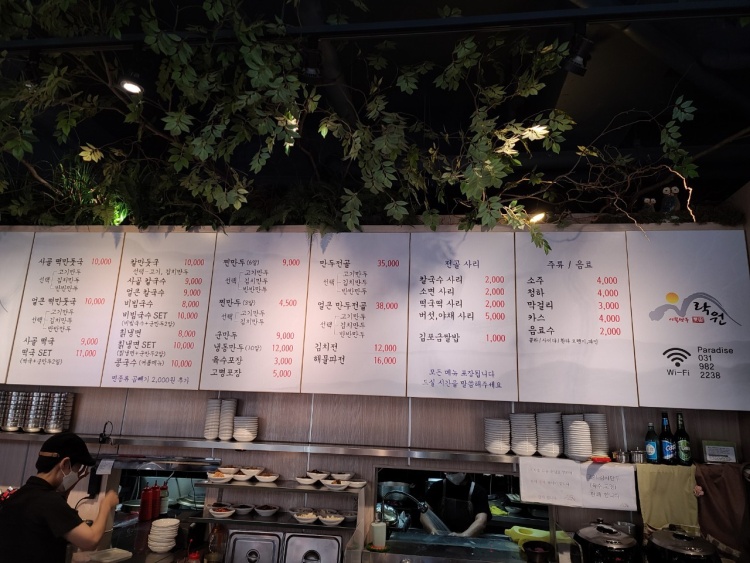 사골 떡만둣국 10,000
고기만두
선택 김치만두
반반만두
얼큰 떡만둣국 10,000
고기만두
선택 김치만두
반반만두
사골 떡국 9,000
떡국 SET 11,000
(떡국+군만두2알)
칼만둣국 10,000
선택-고기, 김치만두
사골 칼국수 9,000
얼큰 칼국수 9,000
비빔국수 8,000
비빔국수 SET 10,000
(비빔국수+군만두2알)
칡냉면 8,000
칡냉면 SET 10,000
(칡냉면+군만두2알)
콩국수 (여름메뉴) 10,000
면종류 곱빼기 2,000원 추가
찐만두 (6알) 9,000
고기만두
선택 김치만두
반반만두
찐만두 (3알) 4,500
고기만두
선택 김치만두
반반만두
군만두 9,000
냉동만두 (10알) 12,000
육수포장 3,000
고명포장 5,000
만두전골 35,000
고기만두
선택 김치만두
반반만두
얼큰 만두전골 38,000
고기만두
선택 김치만두
반반만두
김치전 12,000
해물파전 16,000
전골 사리
칼국수 사리 2,000
소면 사리 2,000
떡국떡 사리 2,000
버섯,야채 사리 5,000
김포금쌀밥 1,000
모든 메뉴 포장됩니다
드실 시간을 말씀해주세요
주류 / 음료
소주 4,000
청하 4,000
막걸리 4,000
카스 4,000
음료수 2,000
낙원
Wi-Fi
Paradise
031
982
2238